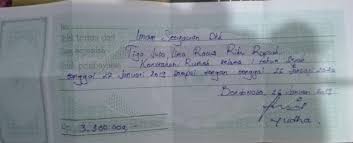 No.
Telah terima dari Iman Setyawan Oki
Uang sejumlah Tiga Juta Lima Ratus Ribu Rupiah
Untuk pembayaran Kontrakan Rumah selama 1 tahun Sejak
tanggal 27 Januari 2019 sampai dengan tanggal 26 Januari 2020
Bondowoso, 26 Januari 2019
Rp. 3.500.000,-
Yudha